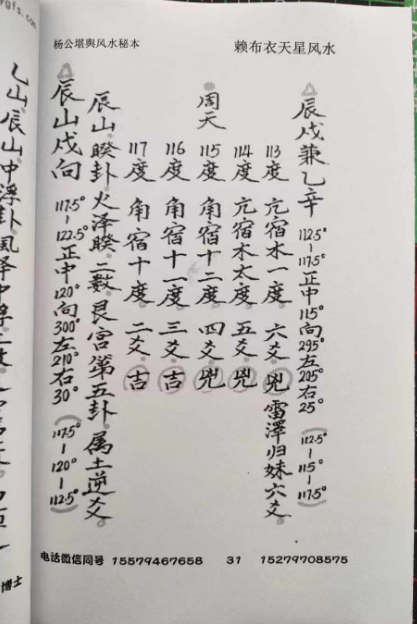 杨公堪舆风水秘本
赖布衣天星风水
辰戌兼乙辛 112.5°-117.5°正中115°向295°左205°右25°（112.5°-115°-117.5°）
113度 亢宿木一度 六爻 兇 雷澤归妹六爻
114度 亢宿木太度 五爻 兇
周天 115度 角宿十二度 四爻 兇
116度 角宿十一度 三爻 吉
117度 角宿十度 二爻 吉
辰山睽卦火泽睽二数艮宫第五卦属土逆爻
辰山戌向 117.5°-122.5°正中120°向300°左210°右30°（117.5°-120°-112.5°）
乙山辰山中浮卦風泽中浮
电话微信同号 15579467658 31 15279708575
博士